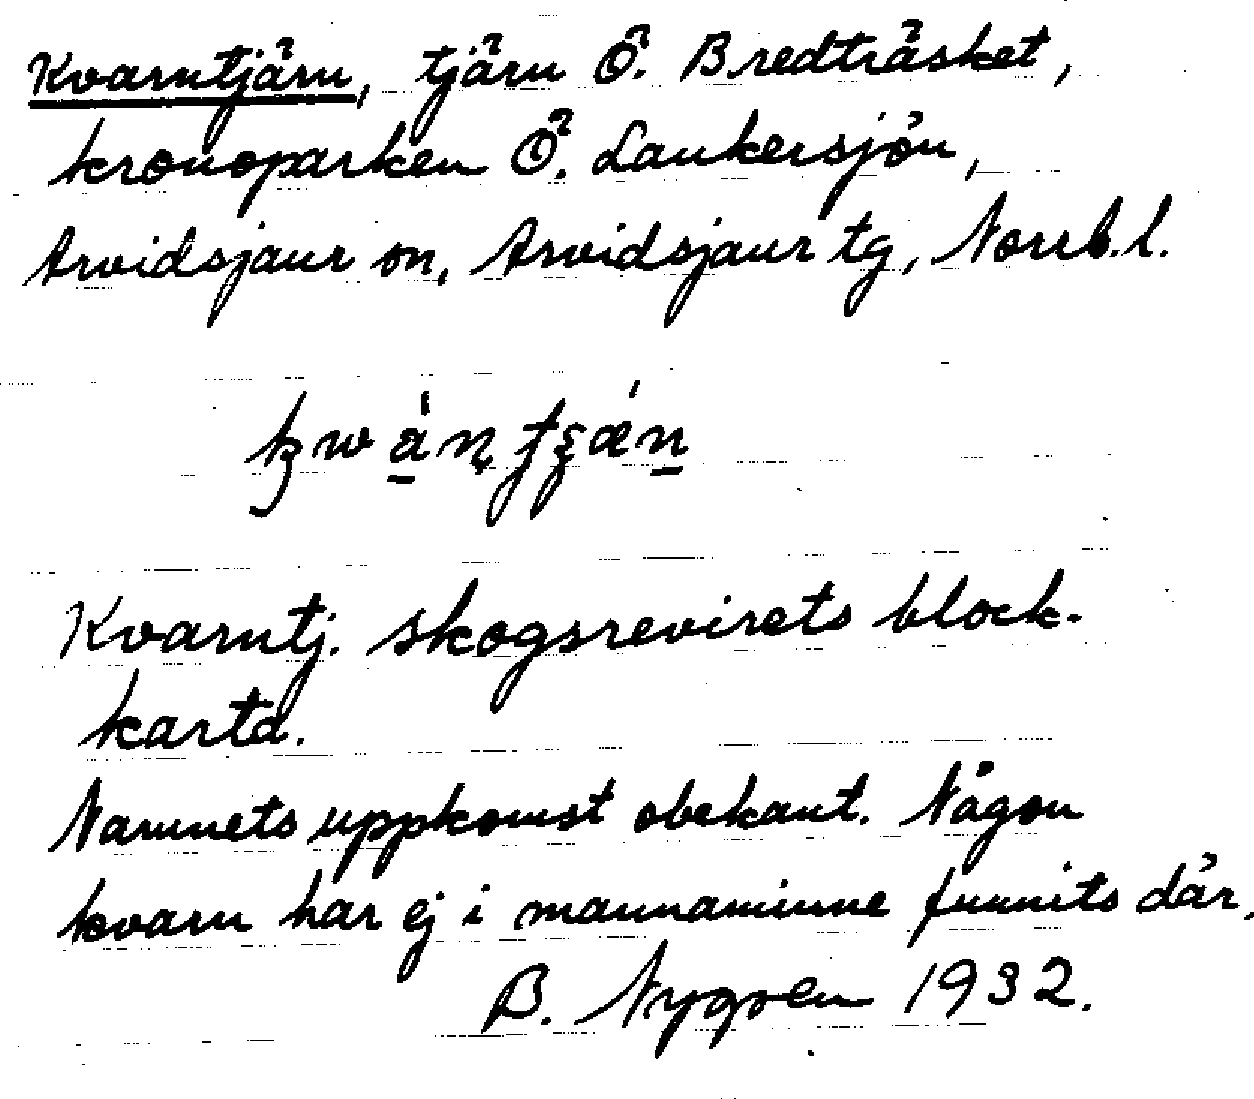 Kvarntjärn, tjärn Ö. Bredträsket,
kronoparken Ö. Laukersjön,
Arvidsjaur sn, Arvidsjaur tg, Norrb.l.
Kvarntj. skogsrevirets block-
karta.
Namnets uppkomst obekant. Någon
kvarn har ej i mannaminne funnits där.
B. Nygren 1932.